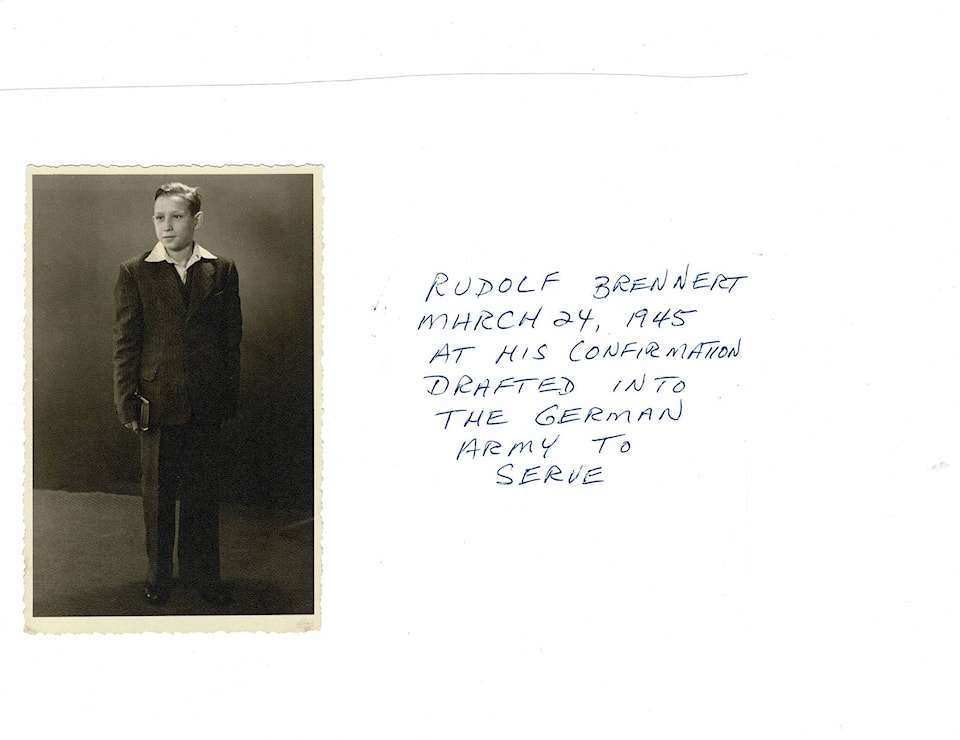 RUDOLF BRENNERT
MARCH 24, 1945
AT HIS CONFIRMATION
DRAFTED INTO
THE GERMAN
ARMY TO
SERVE